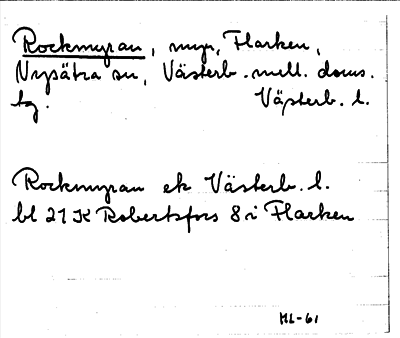 Rockmyran, myr, Flarken,
Nysätra sn, Västerb. mell. doms.
tg. Västerb. l.
Rockmyran ek Västerb. l.
bl 21 K Robertsfors 8 i Flarken
ML-61